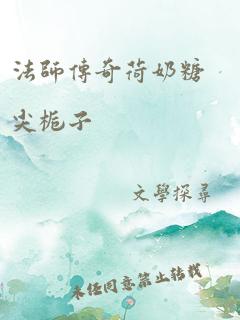 法師傳奇荷奶糖
尖梔子
文學探尋
未經同意禁止轉載